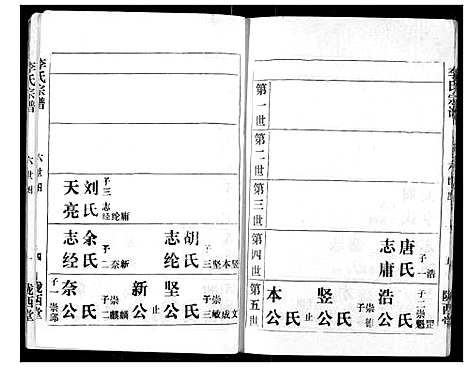 李氏宗譜
第一世
第二世
第三世
第四世
唐氏
子一
浩
志庸
胡氏
子三
坚竖本
志纶
第五世
浩公
氏
竖公
氏
子
崇
本公
氏
坚公
氏
子三
崇
敏文成
新公
止
李氏宗譜
六世图
刘氏
子三
志
经纶庸
天亮
余氏
子二
奈新
志经
奈公
氏
子二
崇
麒麟
子
崇
陇西堂